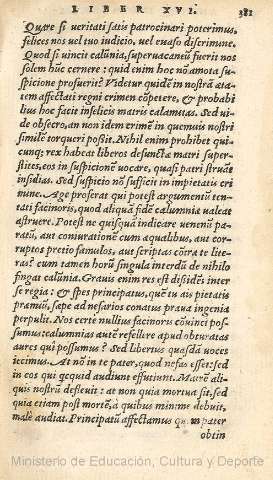 LIBER XVI. 381
Quare si ueritati satis patrocinari poterimus,
felices nos uel tuo iudicio, uel euaso discrimine.
Quod si uincit calūnia, superuacaneū fuerit nos
solem hūc cernere: quid enim hoc nō amota su-
spicione profuerit? Videtur quidē in nostrā æta-
tem affectati regni crimen cōpetere, & probabi
lius hoc facit infelicis matris calamitas. Sed ui-
de obsecro, an non idem crimē in quemuis nostri
simile torqueri possit. Nihil enim prohibet qui-
cunq; rex habeat liberos defuncta matri super-
stites, eos in suspicionē uocare, quasi patri struāt
insidias. Sed suspicio nō sufficit in impietatis cri
mine. Age proferat qui potest argumentū ten-
tati facinoris, quod aliqua fidē calumnia ualeat
astruere. Potest ne quisquā indicare uenenū pa-
ratū, aut coniurationē cum æqualibus, aut cor-
ruptos precio famulos, aut scriptas cōtra te lite-
ras? cum tamen horū singula interdū de nihilo
fingat calūnia. Grauis enim res est dissidēs inter
se regia: & spes principatus, quē tu ais pietatis
præmiū, sæpe ad nefarios conatus praua ingenia
perpulit. Nos certè nullius facinoris cōuinci pos-
sumus: calumnias autē refellere apud obturatas
aures qui possumus? Sed libertius quasdā uoces
iecimus. At nō in te pater, quod nefas esset: sed
in eos qui quicquid audiunt effutiunt. Matrē ali-
quis nostrā defleuit: at non quia mortua sit, sed
quia etiam post mortē, à quibus minime debuit,
malè audiat. Principatū affectamus quem pater
obtin
Ministerio de Educación, Cultura y Deporte